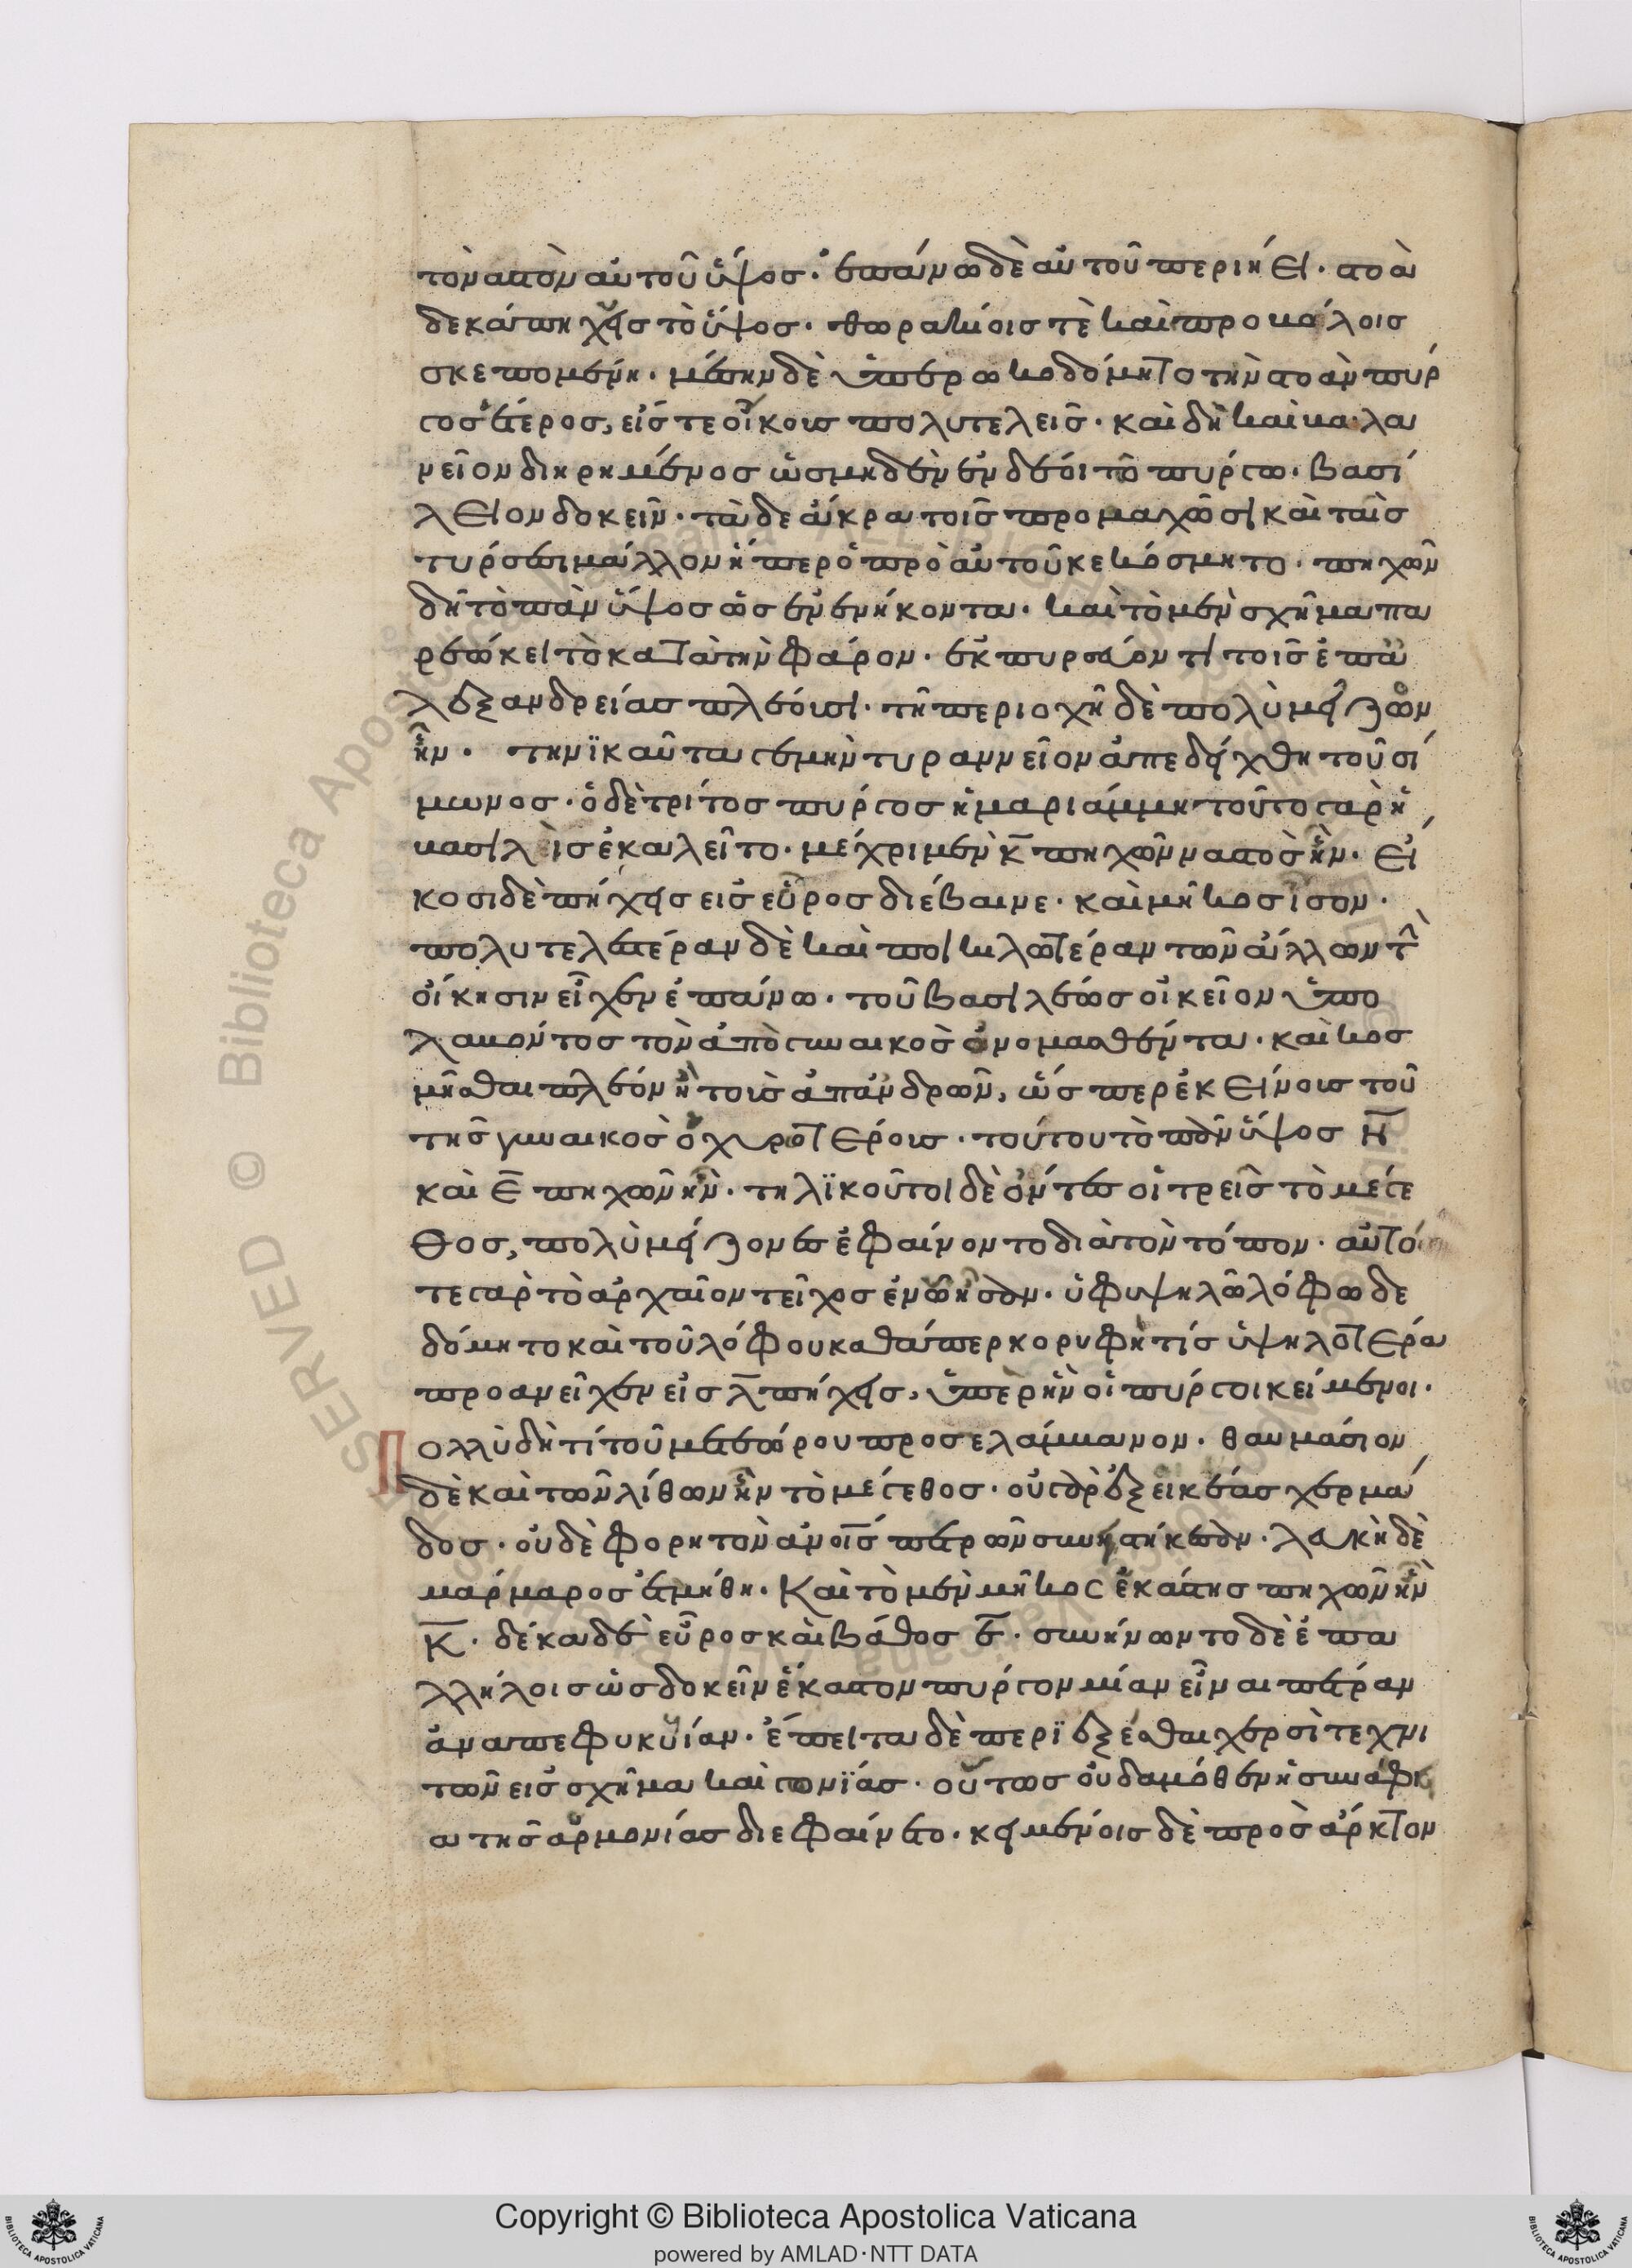 τὸν ναστὸν αὐτοῦ ὕψος· ἐπάνω δὲ αὐτοῦ περιήει· στοὰ
δεκάπηχυς τὸ ὕψος· θωρακίοις τὲ καὶ προβόλοις
σκεπομένη· μέσην δὲ ὑπερωκοδόμητο τὴν στοὰν πύρ
γος ἕτερος, εἴς τε οἴκους πολυτελεῖς· καὶ δὴ καὶ βαλα
νεῖον διηρημένος ὡς μηδὲν ἐνδέοι τῶ πύργω· βασί
λειον δοκεῖν· τὰ δε ἄκρα τοῖς προμαχῶσι καὶ ταῖς
τύρσεσι μᾶλλον ἤπερ ὁ πρὸ αὐτοῦ κεκόσμητο· πηχῶν
δὴ τὸ πᾶν ὕψος ὡς ἐνενήκοντα· καὶ τὸ μὲν σχῆμα πα
ρεώκει τὸ κατὰ τὴν Φάρον· ἐκπυρσεῦον τι τοῖς ἐπ ἀ
λεξανδρείας πλέουσι· τῆ περιοχῆ δὲ πολὺ μείζων
ἦν· τηνϊκαῦτα γεμὴν τυραννεῖον ἀπεδείχθη τοῦ σί
μωνος· ὁ δὲ τρίτος πύργος ἡ μαριάμμη τοῦτο γὰρ ἡ
βασιλὶς ἐκαλεῖτο· μέχρι μὲν κ πηχῶν ναστὸς ἦν· εἴ
κοσι δὲ πήχεις εἰς εὖρος διέβαινε· καὶ μῆκος ἴσον·
πολυτελεστέραν δὲ καὶ ποικιλωτέραν τῶν ἄλλων τὴν
οἴκησιν εἶχεν ἐπάνω· τοῦ βασιλέως οἰκεῖον ὑπο
λαβόντος τὸν ἀπὸ γυναικὸς ὀνομασθέντα· κεκοσ
μῆσθαι πλέον ἢ τοῖς ἀπ ἀνδρῶν, ὥσπερ ἐκείνους τοῦ
τῆς γυναικὸς ὀχυρωτέρους· τούτου τὸ πᾶν ὕψος Ν
καὶ Ε πηχῶν ἦν· τηλϊκοῦτοι δὲ ὄντες οἱ τρεῖς τὸ μέγε
θος, πολὺ μείζονες ἐφαίνοντο διὰ τὸν τόπον· αὐτό
τε γὰρ τὸ ἀρχαῖον τεῖχος ἐν ὧ ἦσαν· ἐφ υψηλῶ λόφω δε
δόμητο καὶ τοῦ λόφου καθάπερ κορυφή τίς ὑψηλοτέρα
προανεῖχεν εἰς λ πήχεις, ὑπὲρ ἣν οἱ πύργοι κείμενοι·
Πολλὺ δή τί τοῦ μετεώρου προσελάμβανον· θαυμάσιον
δὲ καὶ τῶν λίθων ἦν τὸ μέγεθος· οὐ γὰρ ἐξ εἰκέας χερμά
δος· οὐδὲ φορητῶν ἀν οις πετρῶν συνειστήκεσαν· λευκὴ δὲ
μάρμαρος ἐτμήθη· Καὶ τὸ μὲν μῆκος ἑκάστης πηχῶν ἦν
Κ· δέκα δὲ εὖρος καὶ βάθος ε· συνήνωντο δὲ ἐπα
λλήλοις ὡς δοκεῖν ἕκαστον πύργον μίαν εἶναι πέτραν
ἀναπεφυκυῖαν· ἔπειτα δὲ περϊεξέσθαι χερσὶ τεχνι
τῶν εἰς σχῆμα καὶ γωνϊάς· οὕτως οὐδαμόθεν ἡ συνάφει
α τῆς ἁρμονίας διεφαίνετο· κειμένοις δὲ πρὸς ἄρκτον